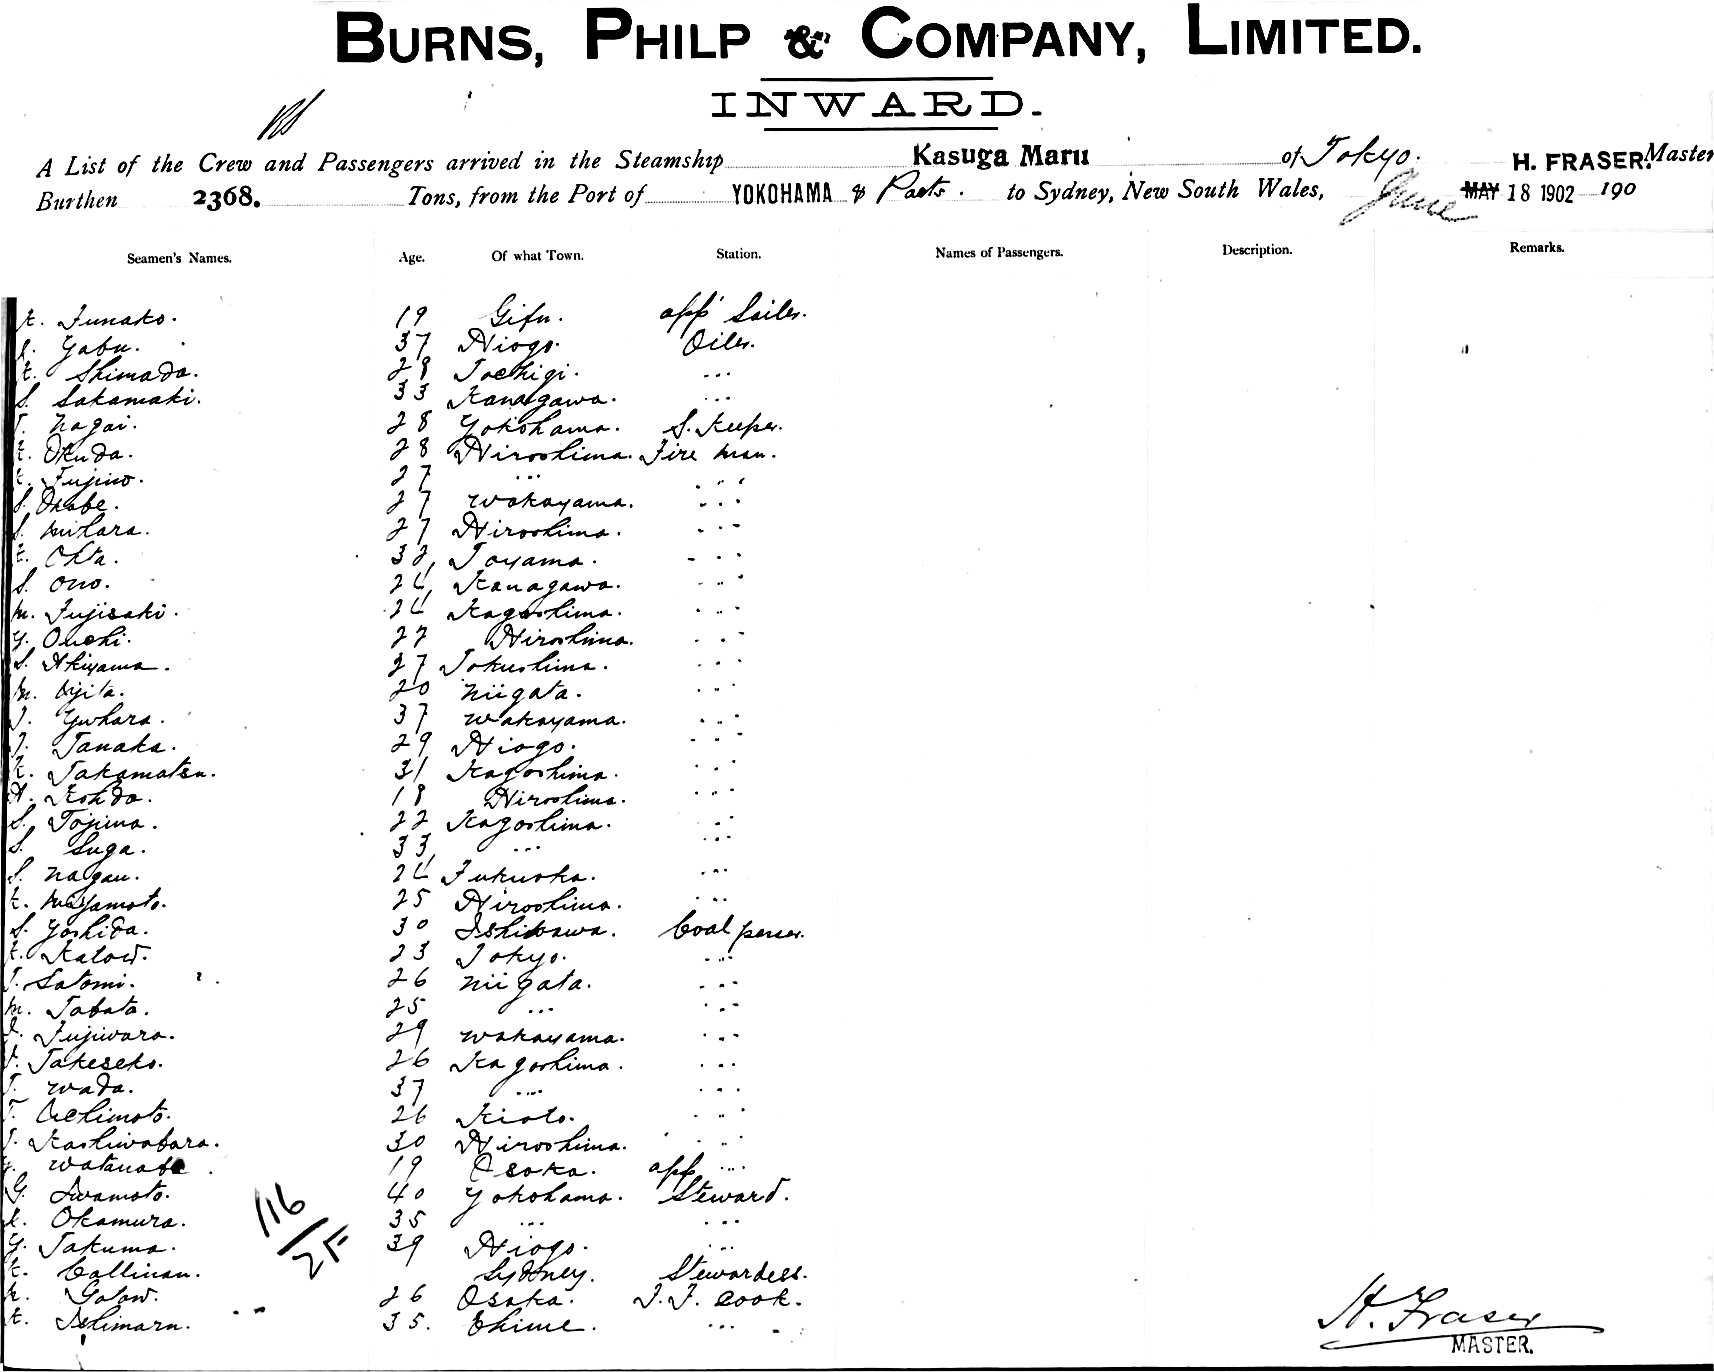 BURNS, PHILP & COMPANY, LIMITED.
INWARD.
A List of the Crew and Passengers arrived in the Steamship Kasuga Maru of Tokyo. H. FRASER. Master
Burthen 2368. Tons, from the Port of YOKOHAMA & Ports. to Sydney, New South Wales, June MAY 18 1902 190
Seamen's Names. Age. Of what Town. Station. Names of Passengers. Description. Remarks.
K. Funako. 19 Gifu. app Sailer.
Yabu. 37 Hiogo. Oiler.
K. Shimada. 28 Tochigi. ...
S. Sakamaki. 33 Kanagawa. ...
T. Nagai. 28 Yokohama. S. Keeper.
K. Okuda. 28 Hiroshima. Fire man.
K. Fujino. 27 ... ...
S. Okabe. 27 Wakayama. ...
S. Mihara. 27 Hiroshima. ...
K. Ohta. 32, Toyama. ...
S. Ono. 24, Kanagawa. ...
M. Fujisaki. 24 Kagoshima. ...
Y. Ouchi. 22 Hiroshima. ...
S. Akiyama. 27 Tokushima. ...
M. Ojita. 20 Niigata. ...
37 Wakayama. ...
T. Tanaka. 29 Hiogo. ...
K. Takamatsu. 31 Kagoshima. ...
H. Kohda. 18 Hiroshima. ...
S. Tojima. 22 Kagoshima. ...
S. Suga. 33 ... ...
S. Nagau. 24 Fukuoka. ...
K. Miyamoto. 25 Hiroshima. ...
S. Yoshida. 30 Ishikawa. Coal passer.
K. Katow. 23 Tokyo. ...
T. Satomi. 26 Niigata. ...
M. Tabata. 25 ... ...
Fujiwara. 29 Wakayama. ...
Takeseko. 26 Kagoshima. ...
T. Wada. 37 ... ...
T. Uchimoto. 26 Kioto. ...
T. Kashiwabara. 30 Hiroshima. ...
Watanabe. 19 Osaka. app ...
G. Iwamoto. 40 Yokohama. Steward.
K. Okamura. 35 ... ...
Y. Takuma. 39 Hiogo. ...
K. Callinan. Sydney. Stewardess.
Gotow. 26 Osaka. I. F. Cook.
K. Ishimaru. 35. Ehime. ...
116
H. Fraser
MASTER.